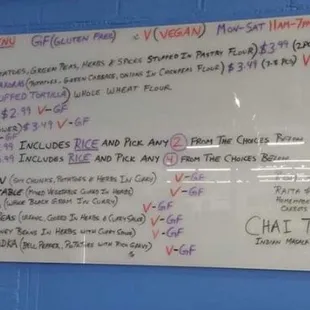 NU GF (GLUTEN FREE) V (VEGAN) MON-SAT 11AM-7P
OTATOES, GREEN PEAS, HERBS & SPICES STUFFED IN PASTRY FLOUR) $3.99 (2P
(POTATOES, GREEN CABBAGE, ONIONS IN CHICKPEAS FLOUR) $3.49 V
UFFED TORTILLA) WHOLE WHEAT FLOUR
$2.99 V-GF
OWER) $3.49 V-GF
.49 INCLUDES RICE AND PICK ANY 2 FROM THE CHOICES BELOW
.49 INCLUDES RICE AND PICK ANY 4 FROM THE CHOICES BELOW
POTATOES & HERBS IN CURRY) V-GF
TABLE (MIXED VEGETABLE COOKED IN HERBS) V-GF
(WHOLE BLACK GRAM IN CURRY)
EAS COOKED IN HERBS & CURRY SAUCE) V-GF
NEY BEANS IN HERBS WITH CURRY SAUCE) V-GF
(BELL PEPPER, POTATOES WITH RICH GRAVY) V-GF
RAITA $
HOMEMADE
CARROTS
CHAI T
INDIAN MASALA